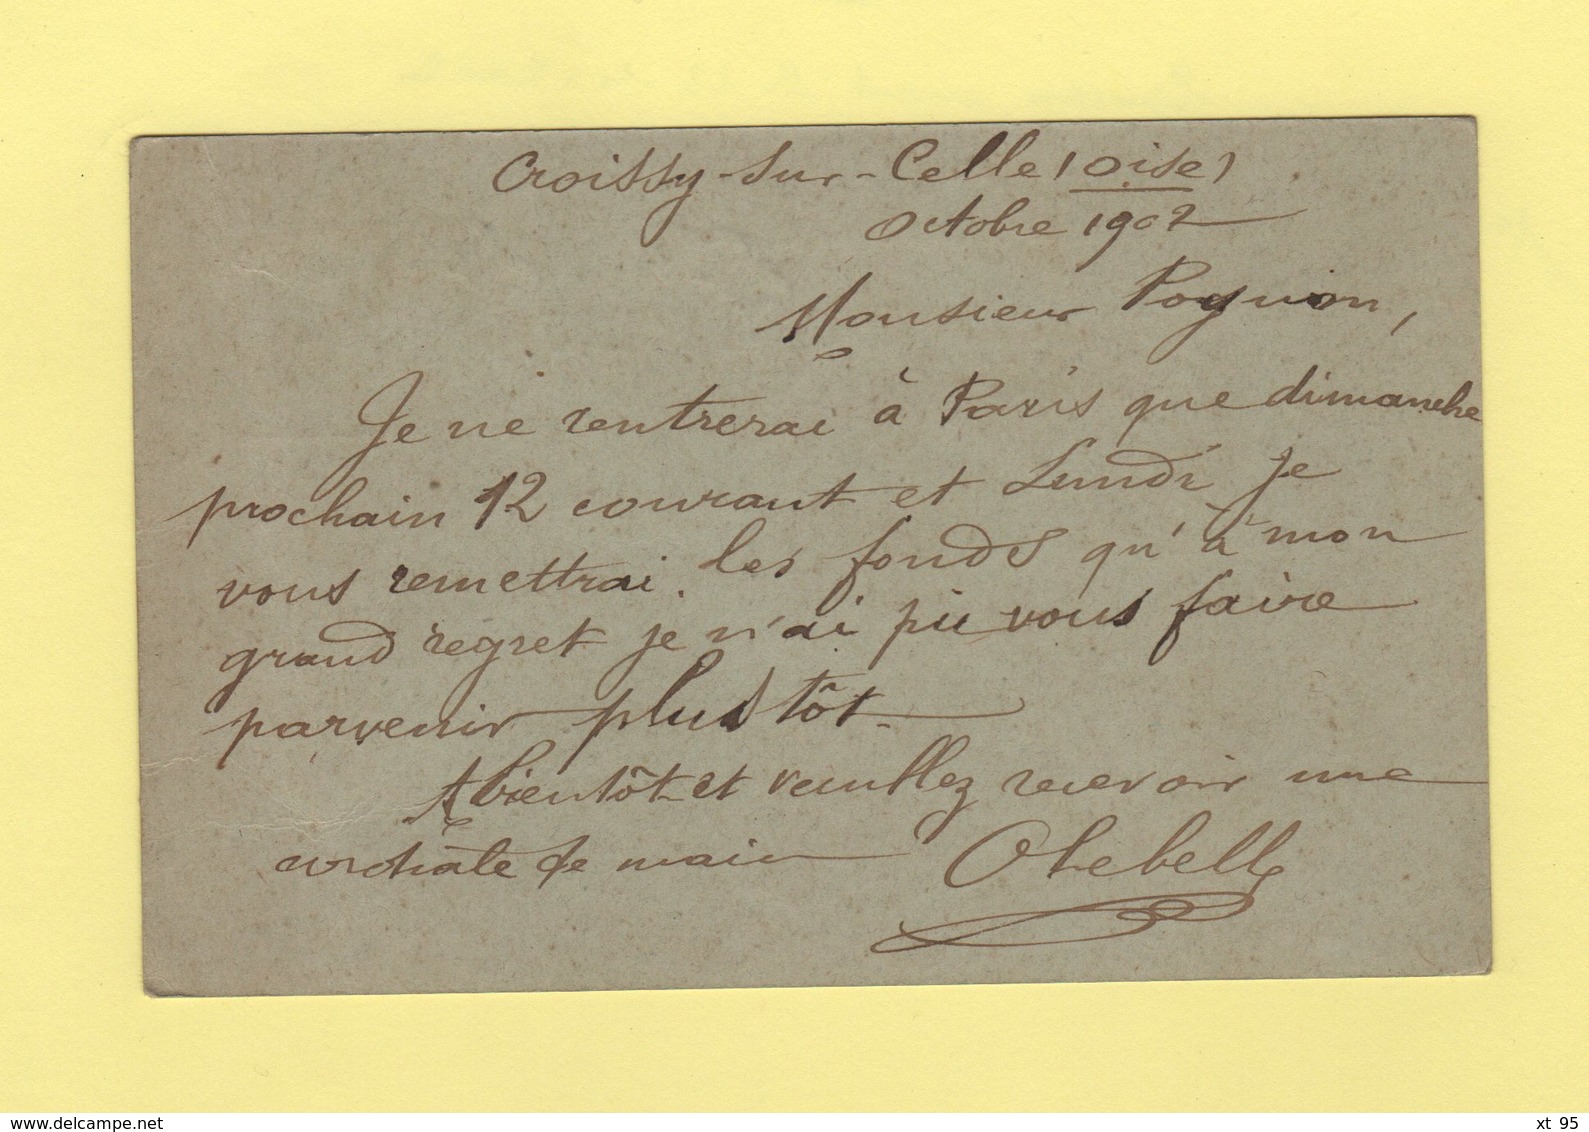 Croissy-sur-Celle (Oise)
Octobre 1902
Monsieur Pognon,
Je ne rentrerai à Paris que dimanche
prochain 12 courant et Lundi je
vous remettrai les fonds qu'à mon
grand regret je n'ai pu vous faire
parvenir plus tôt.
A bientôt et veuillez recevoir une
cordiale de main
www.delcampe.net
xt_95